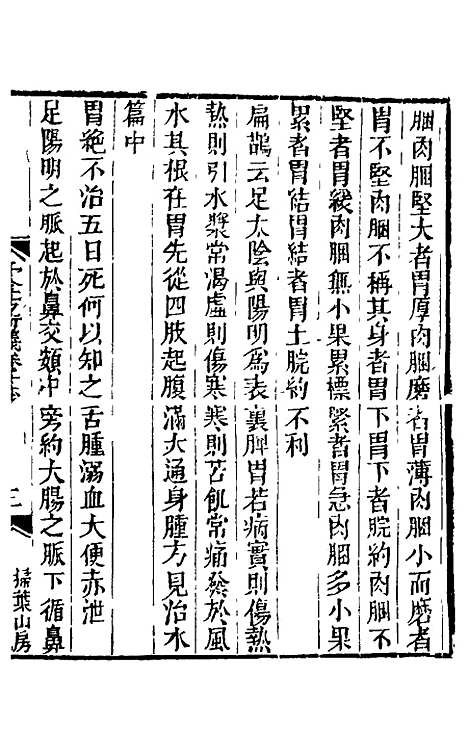 䐃肉䐃堅大者胃厚肉䐃麽者胃薄肉䐃小而麽者
胃不堅肉䐃不稱其身者胃下胃下者脘約肉䐃不
堅者胃緩肉䐃無小果累標緊者胃急肉䐃多小果
累者胃結胃結者胃上脘約不利
扁鵲云足太陰與陽明為表裏脾胃若病實則傷熱
熱則引水漿常渴虛則傷寒寒則苦飢常痛發於風
水其根在胃先從四肢起腹滿大通身腫方見治水
篇中
胃絕不治五日死何以知之舌腫溺血大便赤泄
足陽明之脈起於鼻交頞中旁約大腸之脈下循鼻
千金方衍義卷十六
三
掃葉山房